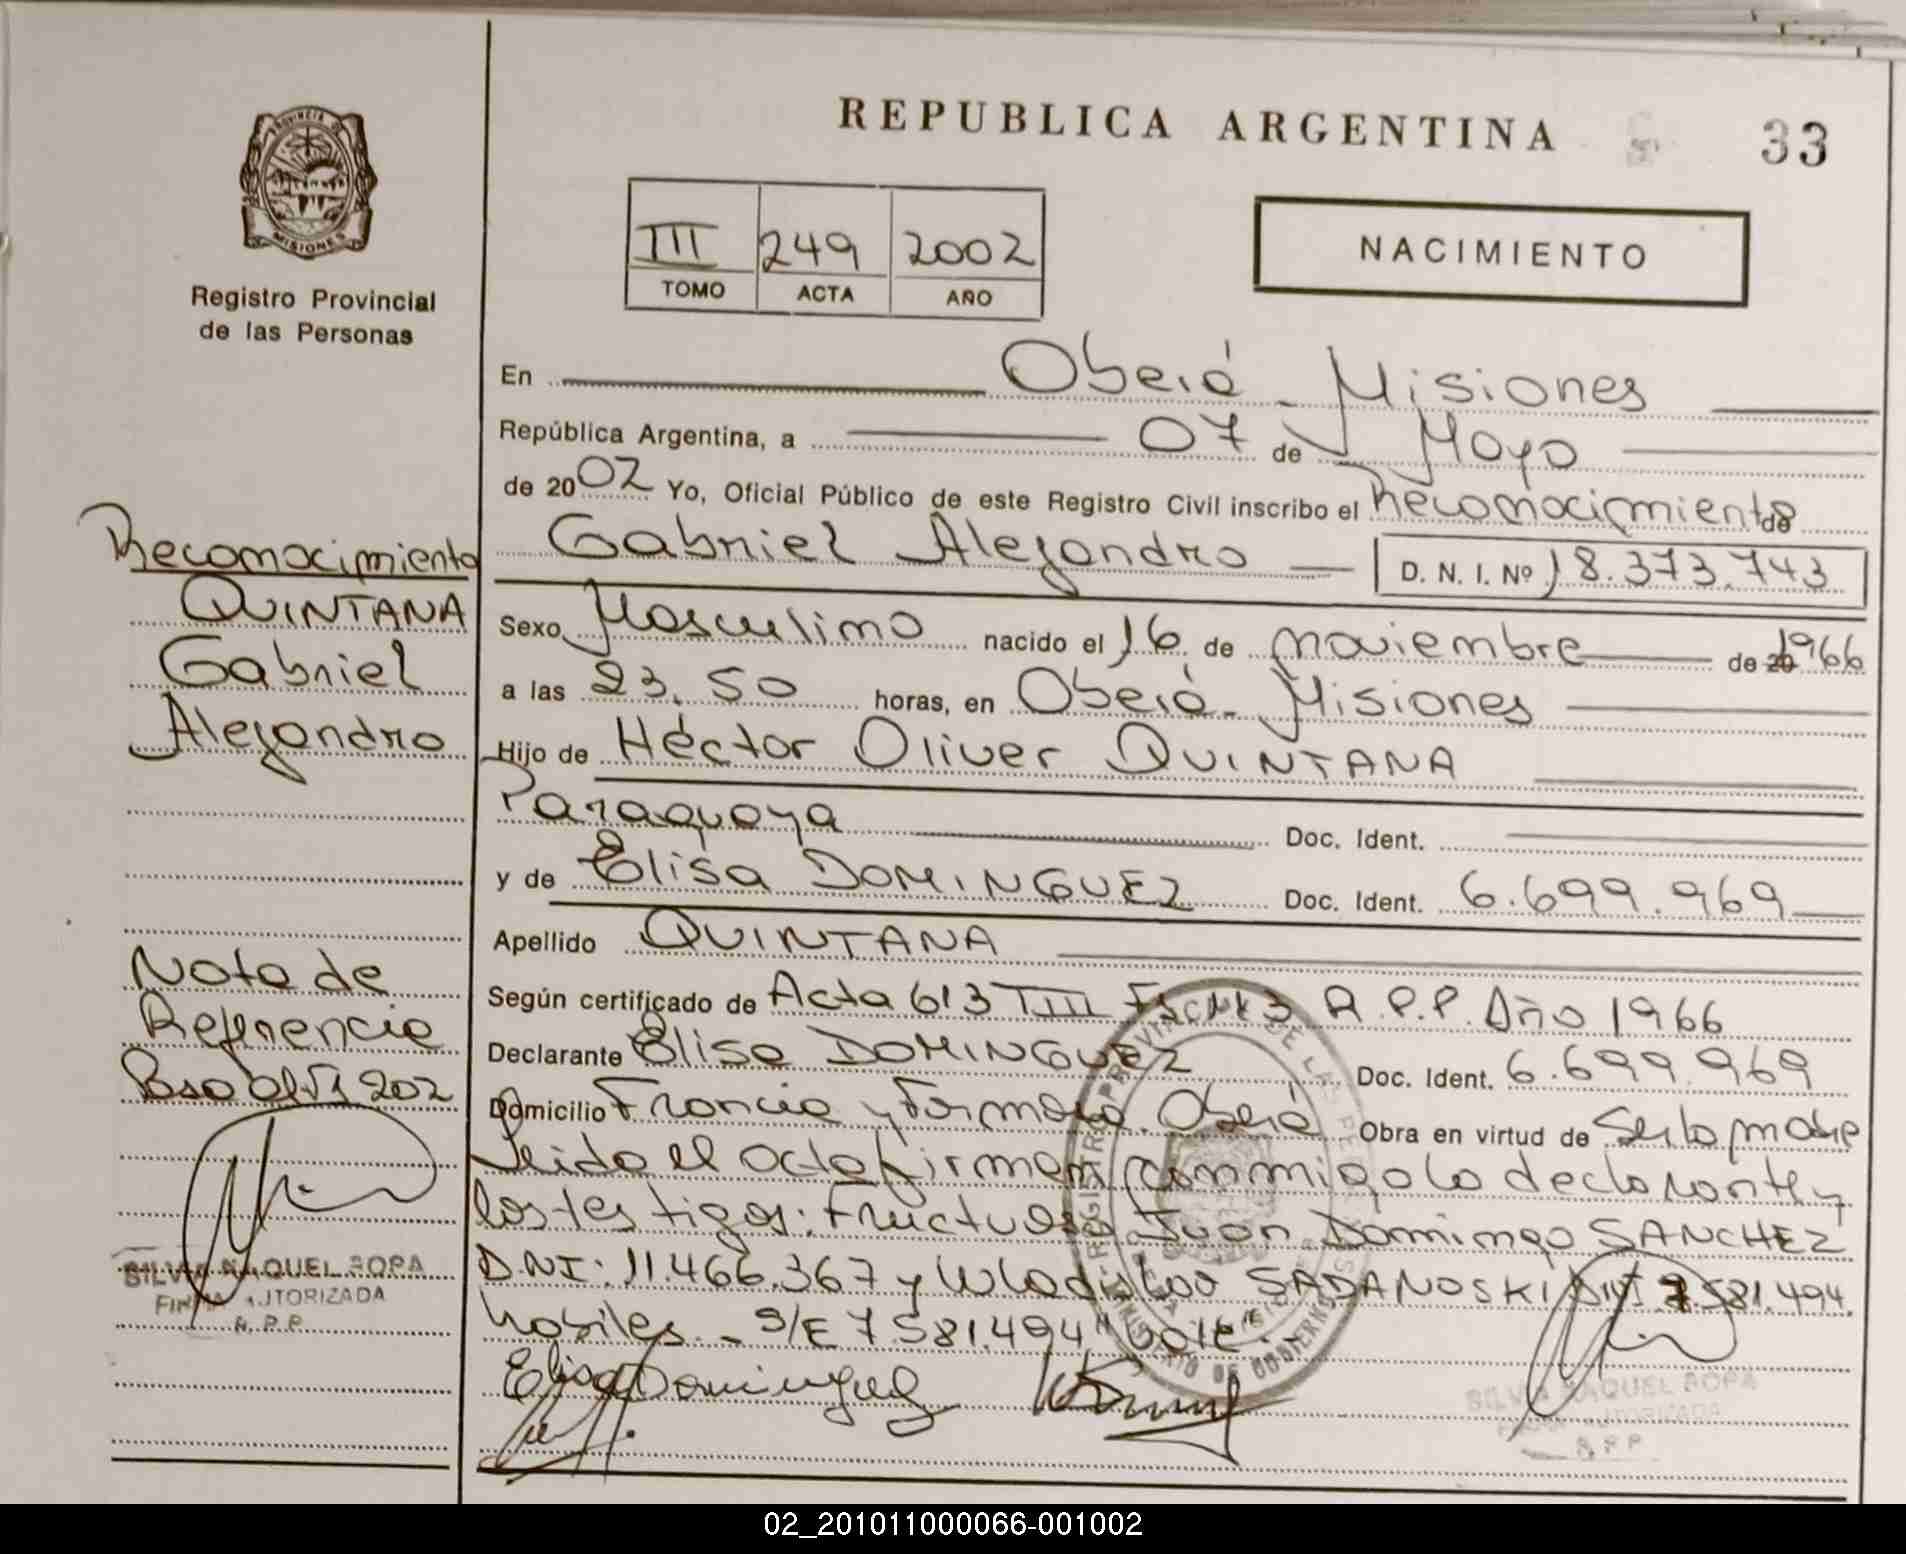 REPUBLICA ARGENTINA
33
PROVINCIA DE
MISIONES
Registro Provincial
de las Personas
III 249 2002
TOMO ACTA AÑO
NACIMIENTO
En Oberá - Misiones
República Argentina, a 07 de Mayo
de 2002 Yo, Oficial Público de este Registro Civil inscribo el Reconocimiento de
Gabriel Alejandro D. N. I. Nº 18.373.743
Sexo Masculino nacido el 16 de noviembre de 20 1966
a las 23.50 horas, en Oberá - Misiones
Hijo de Héctor Oliver QUINTANA
Paraguaya Doc. Ident.
y de Elisa DOMINGUEZ Doc. Ident. 6.699.969
Apellido QUINTANA
Según certificado de Acta 613 TIII R.P.P. Año 1966
Declarante Elisa DOMINGUEZ Doc. Ident. 6.699.969
Domicilio Francia y Formosa. Oberá Obra en virtud de Ser la madre
Leida el acta firman conmigo la declarante y
los testigos: Fructuoso Juan Domingo SANCHEZ
DNI: 11.466.367 y Wladislao SADANOSKI DNI 7.581.494
habiles. - S/E 7.581.494 "Vale" -
Elisa Dominguez
SILVIA RAQUEL ROPA
FIRMA AUTORIZADA
R.P.P.
Reconocimiento
QUINTANA
Gabriel
Alejandro
Nota de
Referencia
SILVIA RAQUEL ROPA
FIRMA AUTORIZADA
R.P.P.
02_201011000066-001002